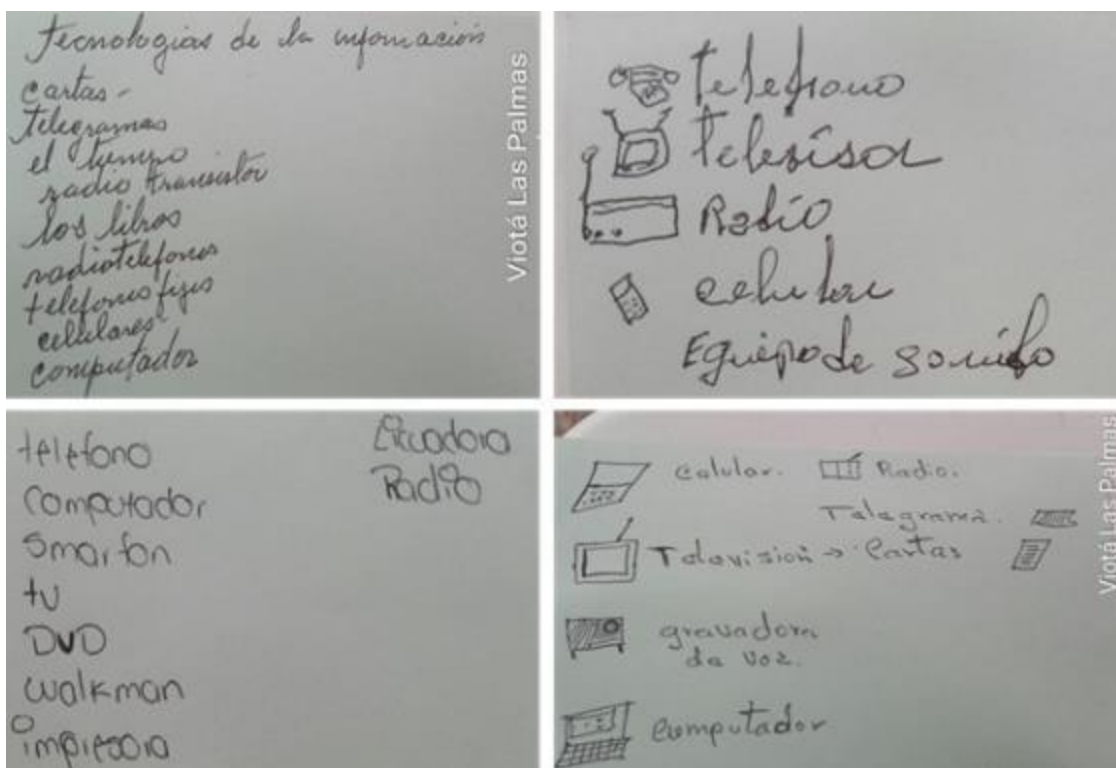 Tecnologias de la informacion
cartas -
Telegramas
el tiempo
radio transistor
los libros
radiotelefonos
telefonos fijos
celulares
computador
Viotá Las Palmas
telefono
Televisor
Radio
celular
Equipo de sonido
telefono
computador
Smarfon
tv
DVD
walkman
impresora
Licuadora
Radio
Celular. Radio.
Telegrama.
Television → Cartas
gravadora
de voz.
Computador
Viotá Las Palmas